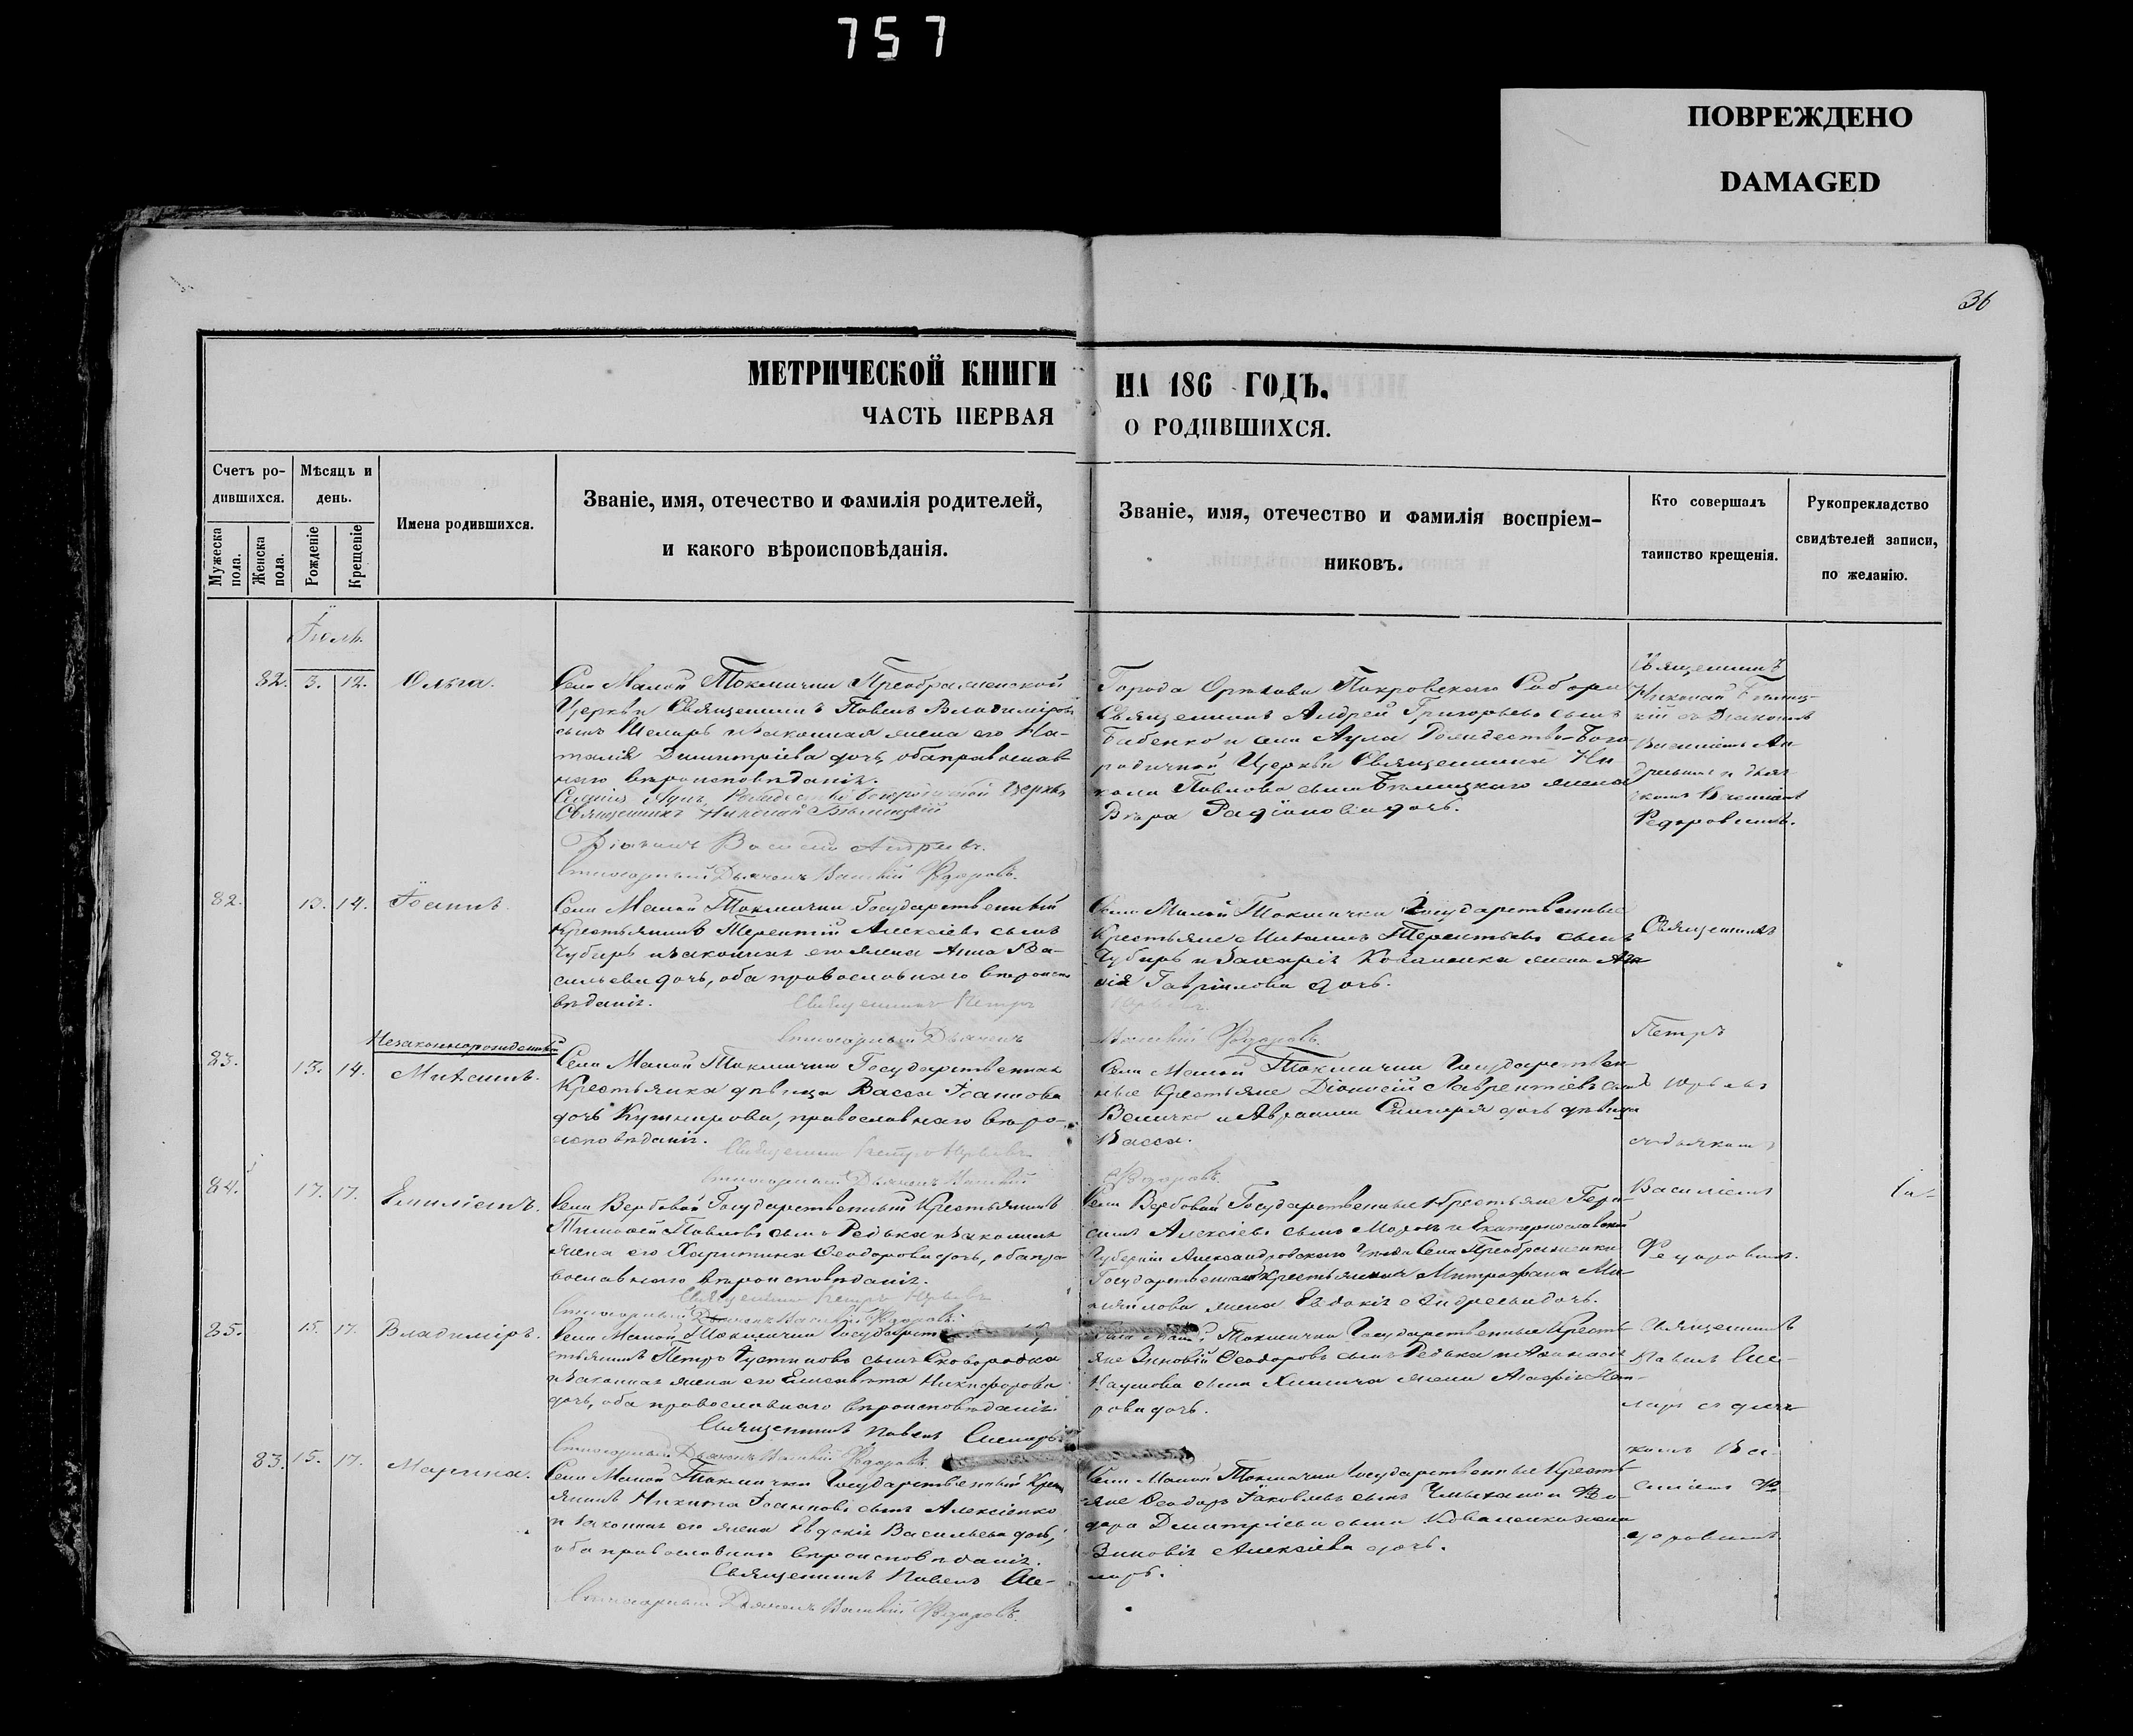 757
ПОВРЕЖДЕНО
DAMAGED
36
МЕТРИЧЕСКОЙ КНИГИ
НА 186 ГОДЪ.
ЧАСТЬ ПЕРВАЯ
О РОДИВШИХСЯ.
Счетъ ро-
дившихся.
Мѣсяцъ и
день.
Мужеска
пола.
Женска
пола.
Рожденіе
Крещеніе
Имена родившихся.
Званіе, имя, отечество и фамилія родителей,
и какого вѣроисповѣданія.
Званіе, имя, отечество и фамилія воспріем-
никовъ.
Кто совершалъ
таинство крещенія.
Рукопрекладство
свидѣтелей записи,
по желанію.
Іюль.
82. 3. 12. Ольга.
Села Малой Токмачки Преображенской
Церкви Священникъ Павелъ Владиміровъ
сынъ Шемаръ и законная жена его На-
талія Димитріева дочь, оба православ-
наго вѣроисповѣданія.
Священникъ Николай Бѣлицкій
Діаконъ Василій Андреевъ.
Дьячекъ Василій Федоровъ.
Города Орѣхова Покровскаго Собора
Священникъ Андрей Григорьевъ сынъ
Бабенко и села Аула Рождество-Бого-
родичной Церкви Священника Ни-
колая Павлова сына Бѣлицкаго жена
Вѣра Радіонова дочь.
Священникъ
Николай Бѣлиц-
кій съ Діакономъ
Василіемъ Ан-
дреевымъ и дьяч-
комъ Василіемъ
Федоровымъ.
82. 13. 14. Іоаннъ.
Села Малой Токмачки Государственный
крестьянинъ Терентій Алексіевъ сынъ
Чубарь и законная его жена Анна Ва-
сильева дочь, оба православнаго вѣроиспо-
вѣданія.
Священникъ Петръ
Дьячекъ
Василій Федоровъ.
Села Малой Токмачки Государственные
Крестьяне Михаилъ Терентьевъ сынъ
Чубарь и Захаріи Коваленка жена
Гавріилова дочь.
Священникъ
Петръ
Незаконнорожденный
83. 13. 14. Михаилъ.
Села Малой Токмачки Государственная
Крестьянка дѣвица Васса Іоаннова
дочь Кушнирова, православнаго вѣро-
исповѣданія.
Священникъ Петръ
Дьячекъ Василій
Федоровъ.
Села Малой Токмачки Государствен-
ные Крестьяне Діонисій Лаврентіевъ сынъ
Величко и Авраама дочь дѣвица
Васса.
съ дьячкомъ
84. 17. 17. Емиліанъ.
Села Вербовой Государственный Крестьянинъ
Тимоѳей Павловъ сынъ Редька и законная
жена его Харитина Ѳеодорова дочь, оба пра-
вославнаго вѣроисповѣданія.
Священникъ Петръ
Дьячекъ Василій Федоровъ.
Села Вербовой Государственные Крестьяне Гера-
симъ Алексіевъ сынъ и Екатеринославской
Губерніи Александровскаго Уѣзда Села Преображенки
Государственнаго крестьянина Митрофана Ми-
хайлова жена Евдокія Андреева дочь.
Василіемъ
Федоровымъ.
85. 15. 17. Владиміръ.
Села Малой Токмачки Государст
стьянинъ Петръ Іустиновъ сынъ Сковородка
и законная жена его Елисавета Никифорова
дочь, оба православнаго вѣроисповѣданія.
Священникъ Павелъ Шемаръ.
Дьячекъ Василій Федоровъ.
Токмачки Государственные Кресть-
яне Зиновій Ѳеодоровъ сынъ Редька и Аѳанасія
Наумова сына жена Агафія Пет-
рова дочь.
Священникъ
Павелъ Ше-
маръ съ дьяч-
комъ Ва-
силіемъ Фе-
доровымъ
83. 15. 17. Марина.
Села Малой Токмачки Государственный Кресть-
янинъ Никита Іоанновъ сынъ Алексіенко
и законная его жена Евдокія Васильева дочь,
оба православнаго вѣроисповѣданія.
Священникъ Павелъ Ше-
маръ.
Дьячекъ Василій Федоровъ.
Села Малой Токмачки Государственные Кресть-
яне Ѳеодоръ Іаковлевъ сынъ и Фе-
дора Дмитріева сына Коваленка жена
Зиновія Алексіева дочь.